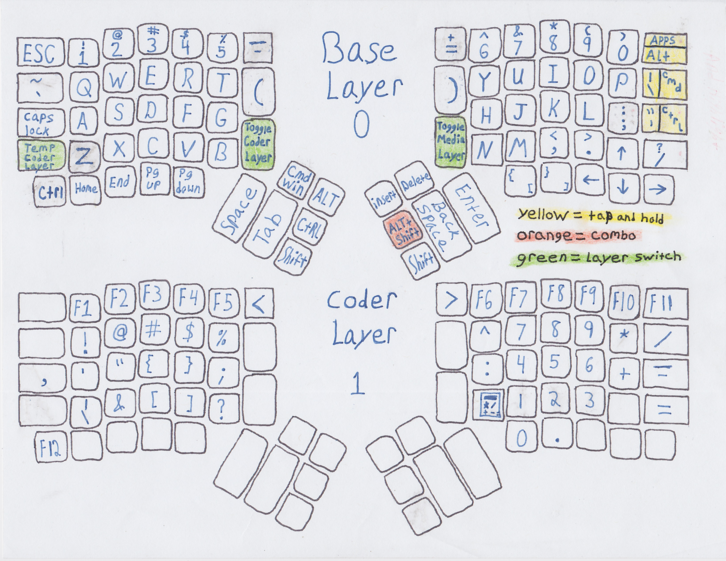 ESC ! 1 @ 2 # 3 $ 4 % 5 -
~ ` Q W E R T (
Caps lock A S D F G Toggle Coder Layer
Temp Coder Layer Z X C V B
Ctrl Home End Pg up Pg down
Space Tab Cmd win ALT CtRL Shift
Base
Layer
0
+ = ^ 6 & 7 * 8 9 0 APPS Alt
) Y U I O P \ Cmd
Toggle Media Layer H J K L : ; " ' Ctrl
N M < , > . ↑ ? /
{ [ } ] ← ↓ →
insert Delete ALT+ Shift Back Space Enter Shift
yellow = tap and hold
orange = combo
green = layer switch
F1 F2 F3 F4 F5 <
! @ # $ % 
, ' " { } ;
\ & [ ] ?
F12
Coder
Layer
1
> F6 F7 F8 F9 F10 F11
^ 7 8 9 * /
: 4 5 6 + -
1 2 3 =
0 .